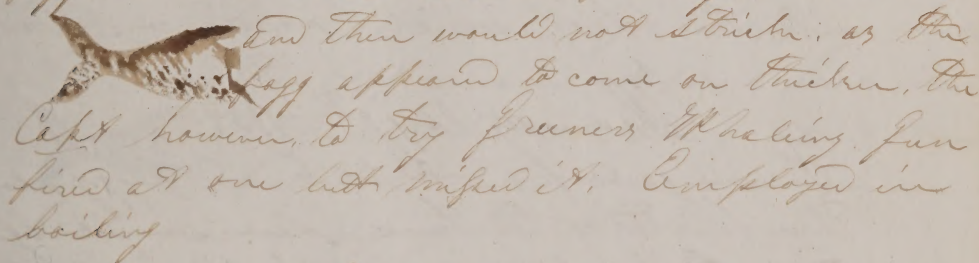 and then would not strike. as the
fogg appeard to come on thicker, the
Capt however, to try Greeners Whaleing Gun
fired at one but missed it. Employed in
boiling